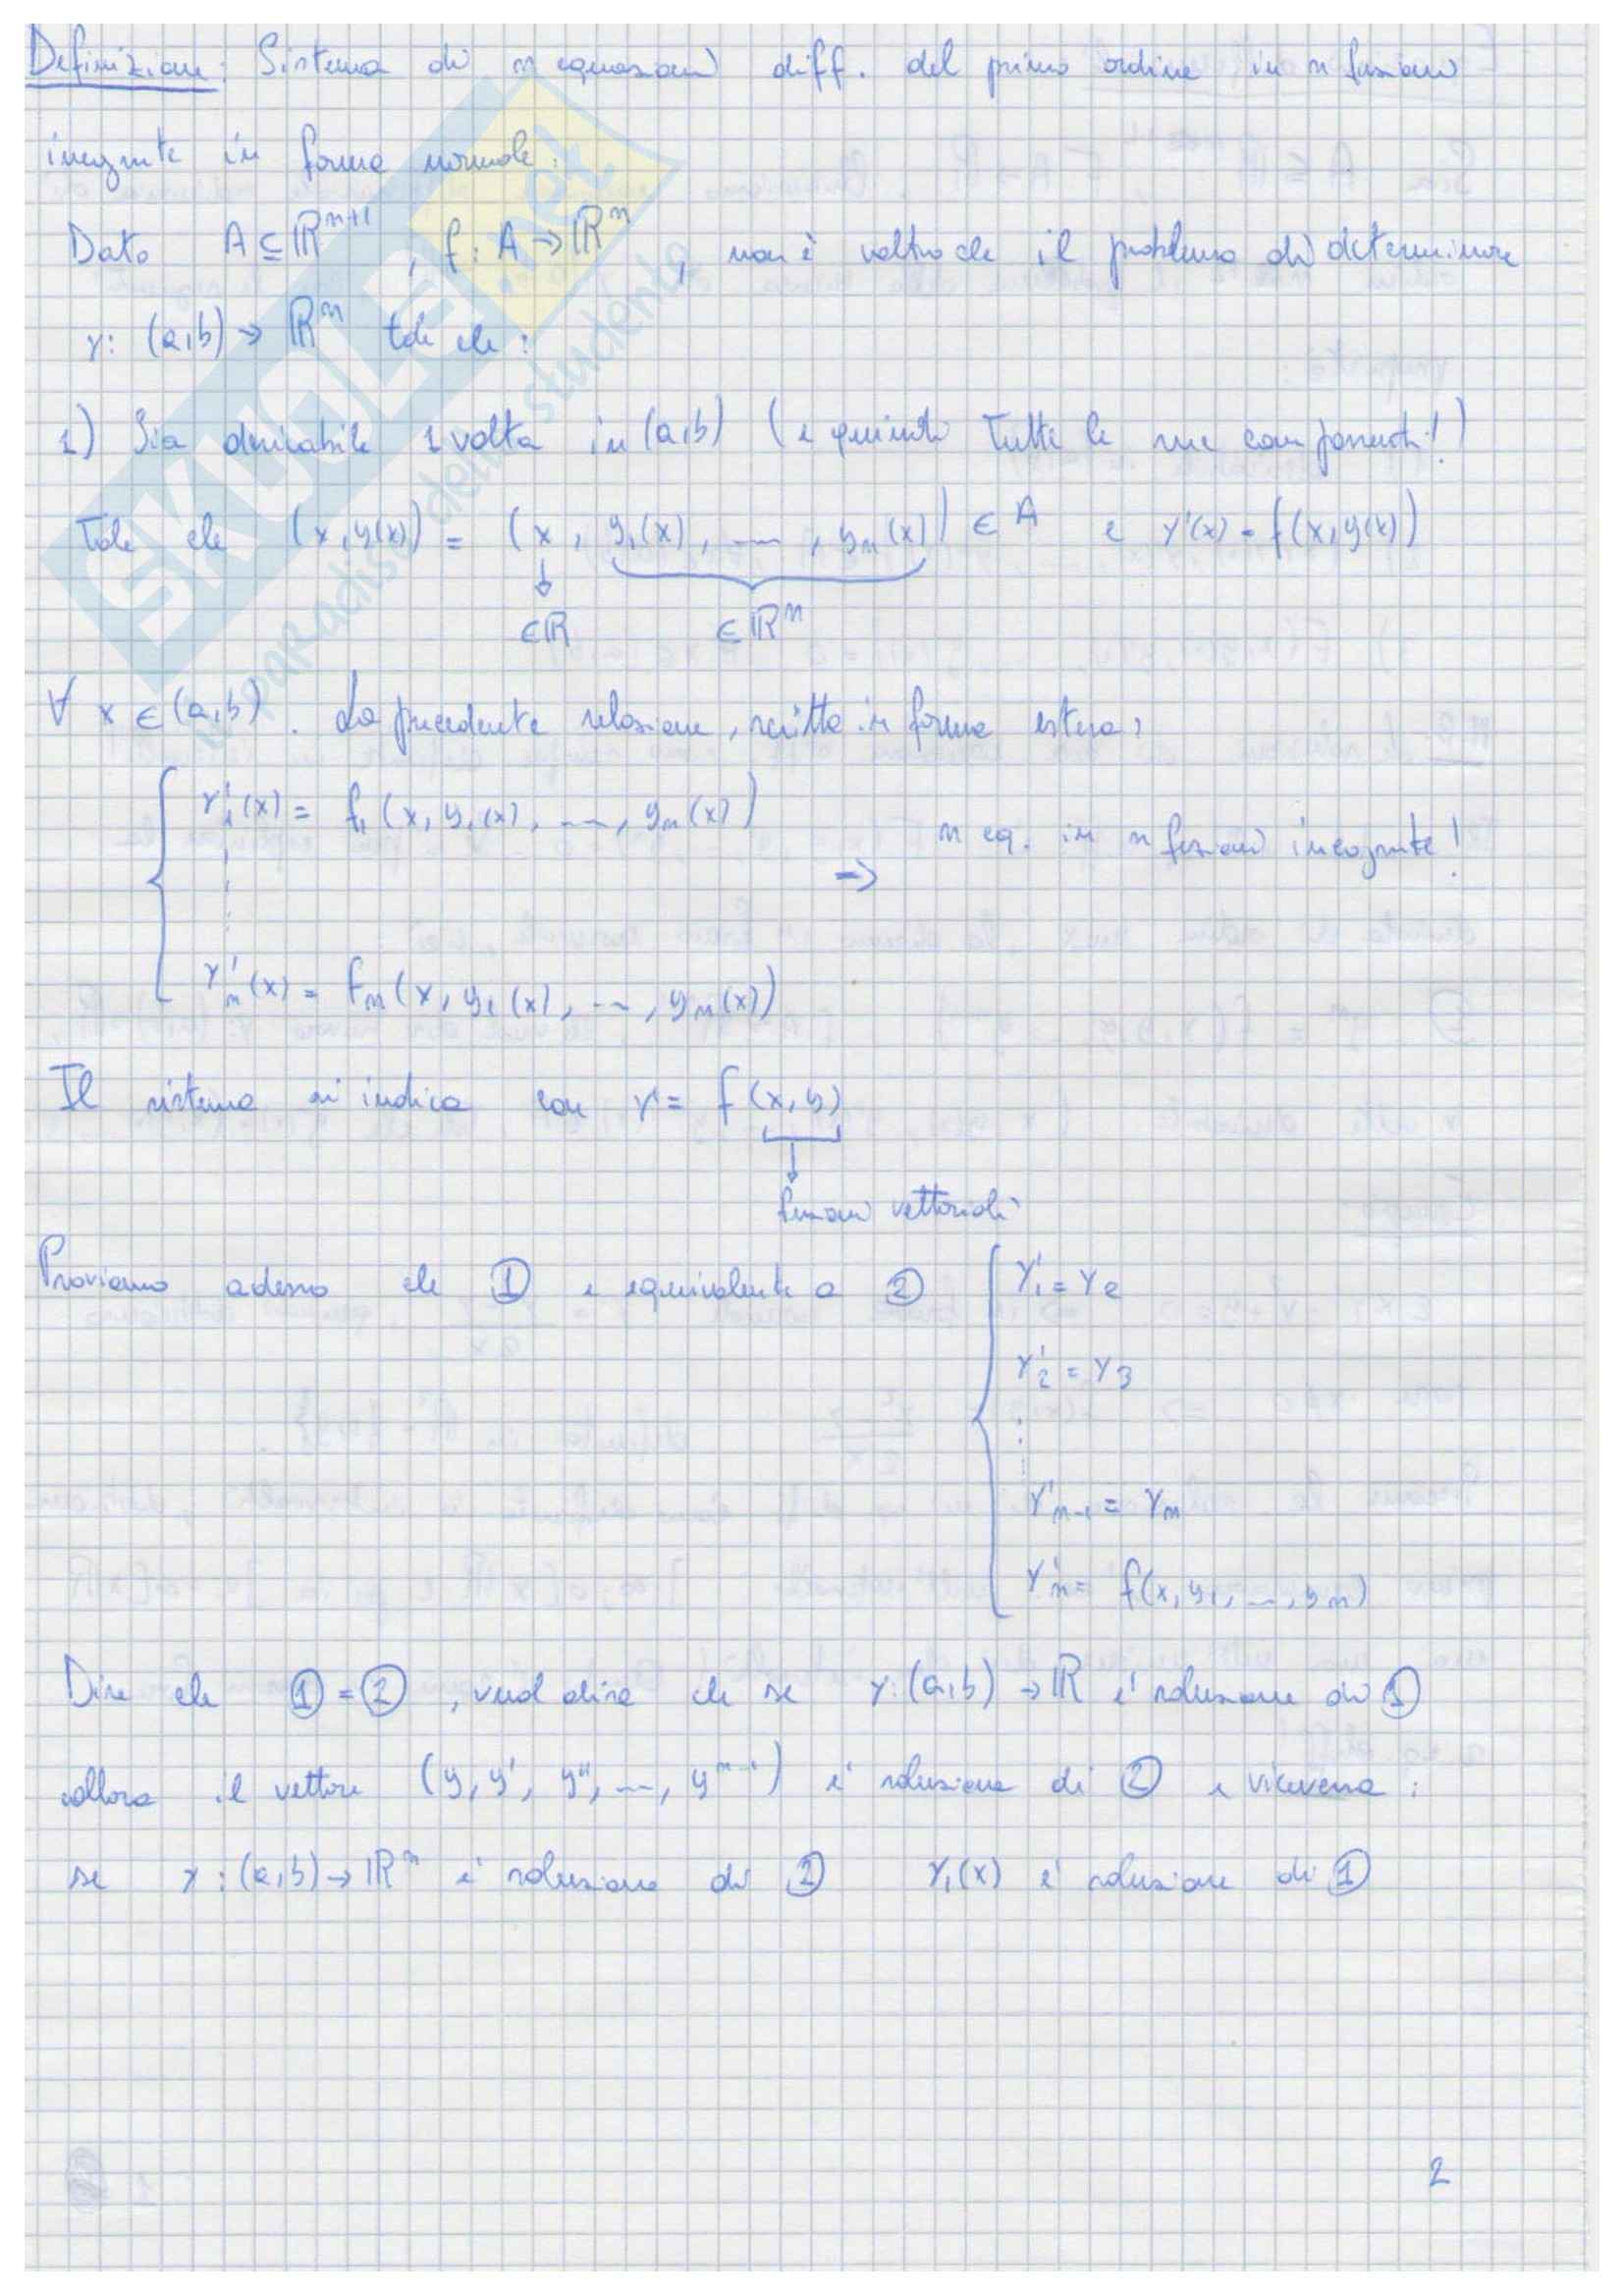 Definizione: Sistema di n equazioni diff. del primo ordine in n funzioni
incognite in forma normale:
Dato A ⊆ ℝⁿ⁺¹, f: A → ℝⁿ, non è altro che il problema di determinare
y: (a,b) → ℝⁿ tale che:
1) Sia derivabile 1 volta in (a,b) (e quindi tutte le sue componenti!)
Tale che (x, y(x)) = (x, y₁(x), ..., yₙ(x)) ∈ A e y'(x) = f(x, y(x))
∈ℝ ∈ℝⁿ
∀ x ∈ (a,b). La precedente relazione, scritta in forma estesa,
y'₁(x) = f₁(x, y₁(x), ..., yₙ(x))
⇒ n eq. in n funzioni incognite!
y'ₙ(x) = fₙ(x, y₁(x), ..., yₙ(x))
Il sistema si indica con y' = f(x, y)
funzioni vettoriali
Proviamo adesso che ① è equivalente a ② y'₁ = y₂
y'₂ = y₃
y'ₙ₋₁ = yₙ
y'ₙ = f(x, y₁, ..., yₙ)
Dire che ① = ②, vuol dire che se y: (a,b) → ℝ è soluzione di ①
allora il vettore (y, y', y'', ..., yⁿ⁻¹) è soluzione di ② e viceversa:
se y: (a,b) → ℝⁿ è soluzione di ② y₁(x) è soluzione di ①
2
SKUOLA.net
il paradiso dello studente